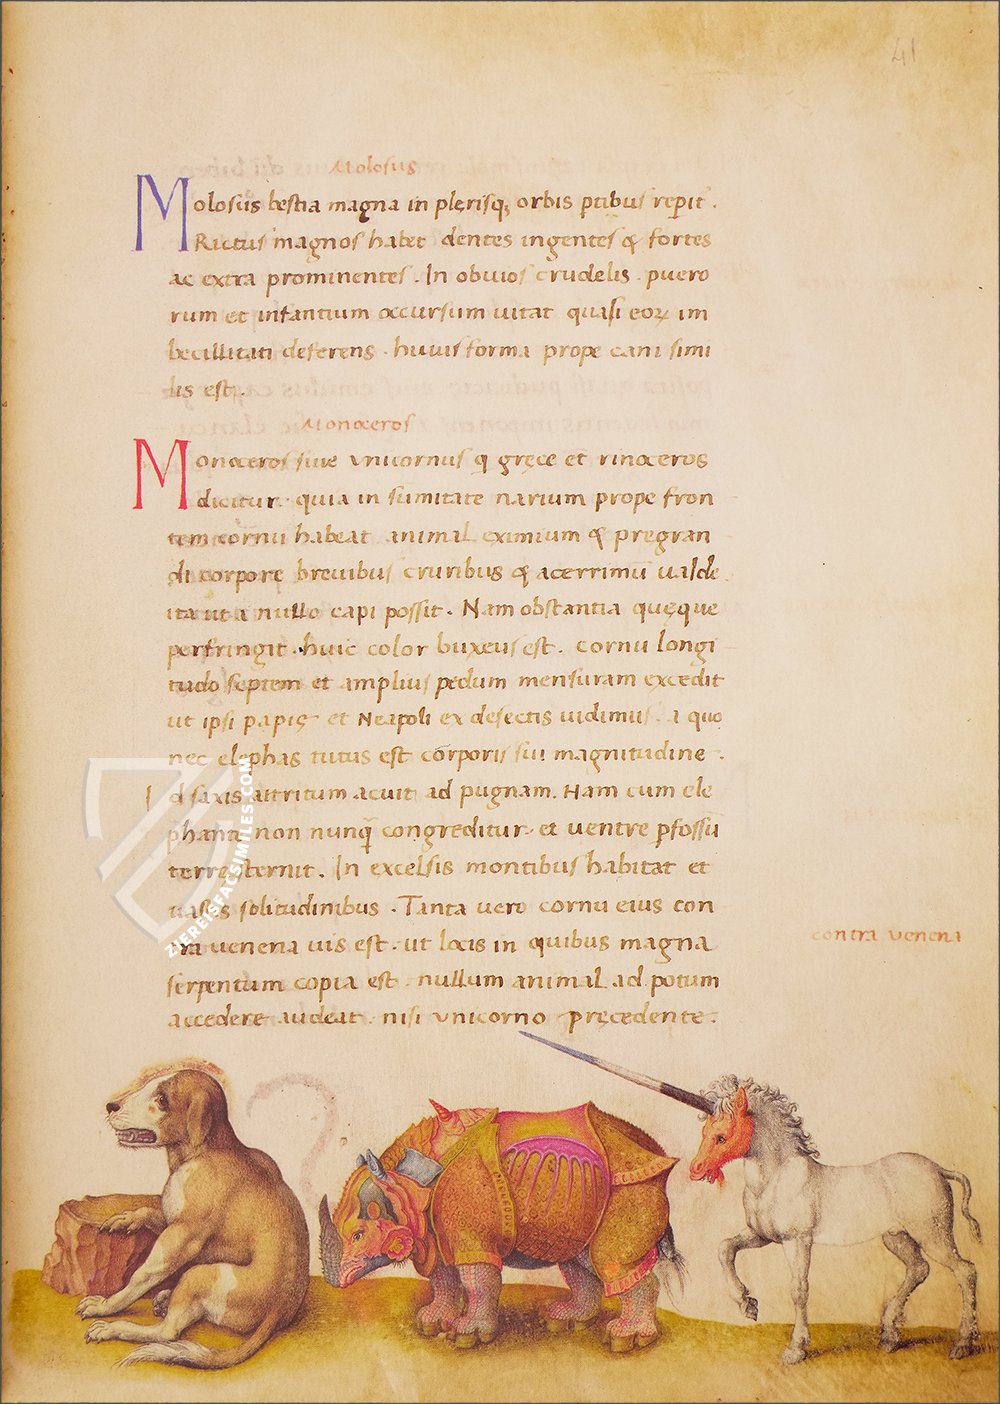 41
Molosus
Molosus bestia magna in plerisq; orbis ptibus reperit.
Rictus magnos habet dentes ingentes & fortes
ac extra prominentes. In obuios crudelis. puero
rum et infantium occursum uitat quasi eorum im
becillitati deferens. huius forma prope cani simi
lis est.
Monoceros
Monoceros siue vnicornus q gręce et rinoceros
dicitur. quia in sumitate narium prope fron
tem cornu habeat animal eximium & pregran
di corpore breuibus cruribus & acerrimū ualde
ita ut a nullo capi possit. Nam obstantia quęque
perfringit. huic color buxeus est. cornu longi
tudo septem et amplius pedum mensuram excedit
ut ipsi papię et Neapoli ex desectis uidimus. a quo
nec elephas tutus est corporis sui magnitudine.
Id saxis attritum acuit ad pugnam. Nam cum ele
phanti non nunq̄ congreditur. et uentre pfossū
terre sternit. In excelsis montibus habitat et
uastis solitudinibus. Tanta uero cornu eius con
tra uenena uis est. ut locis in quibus magna
contra venena
serpentum copia est nullum animal ad potum
accedere audeat nisi vnicorno pręcedente.
ZIEREISFACSIMILES.COM